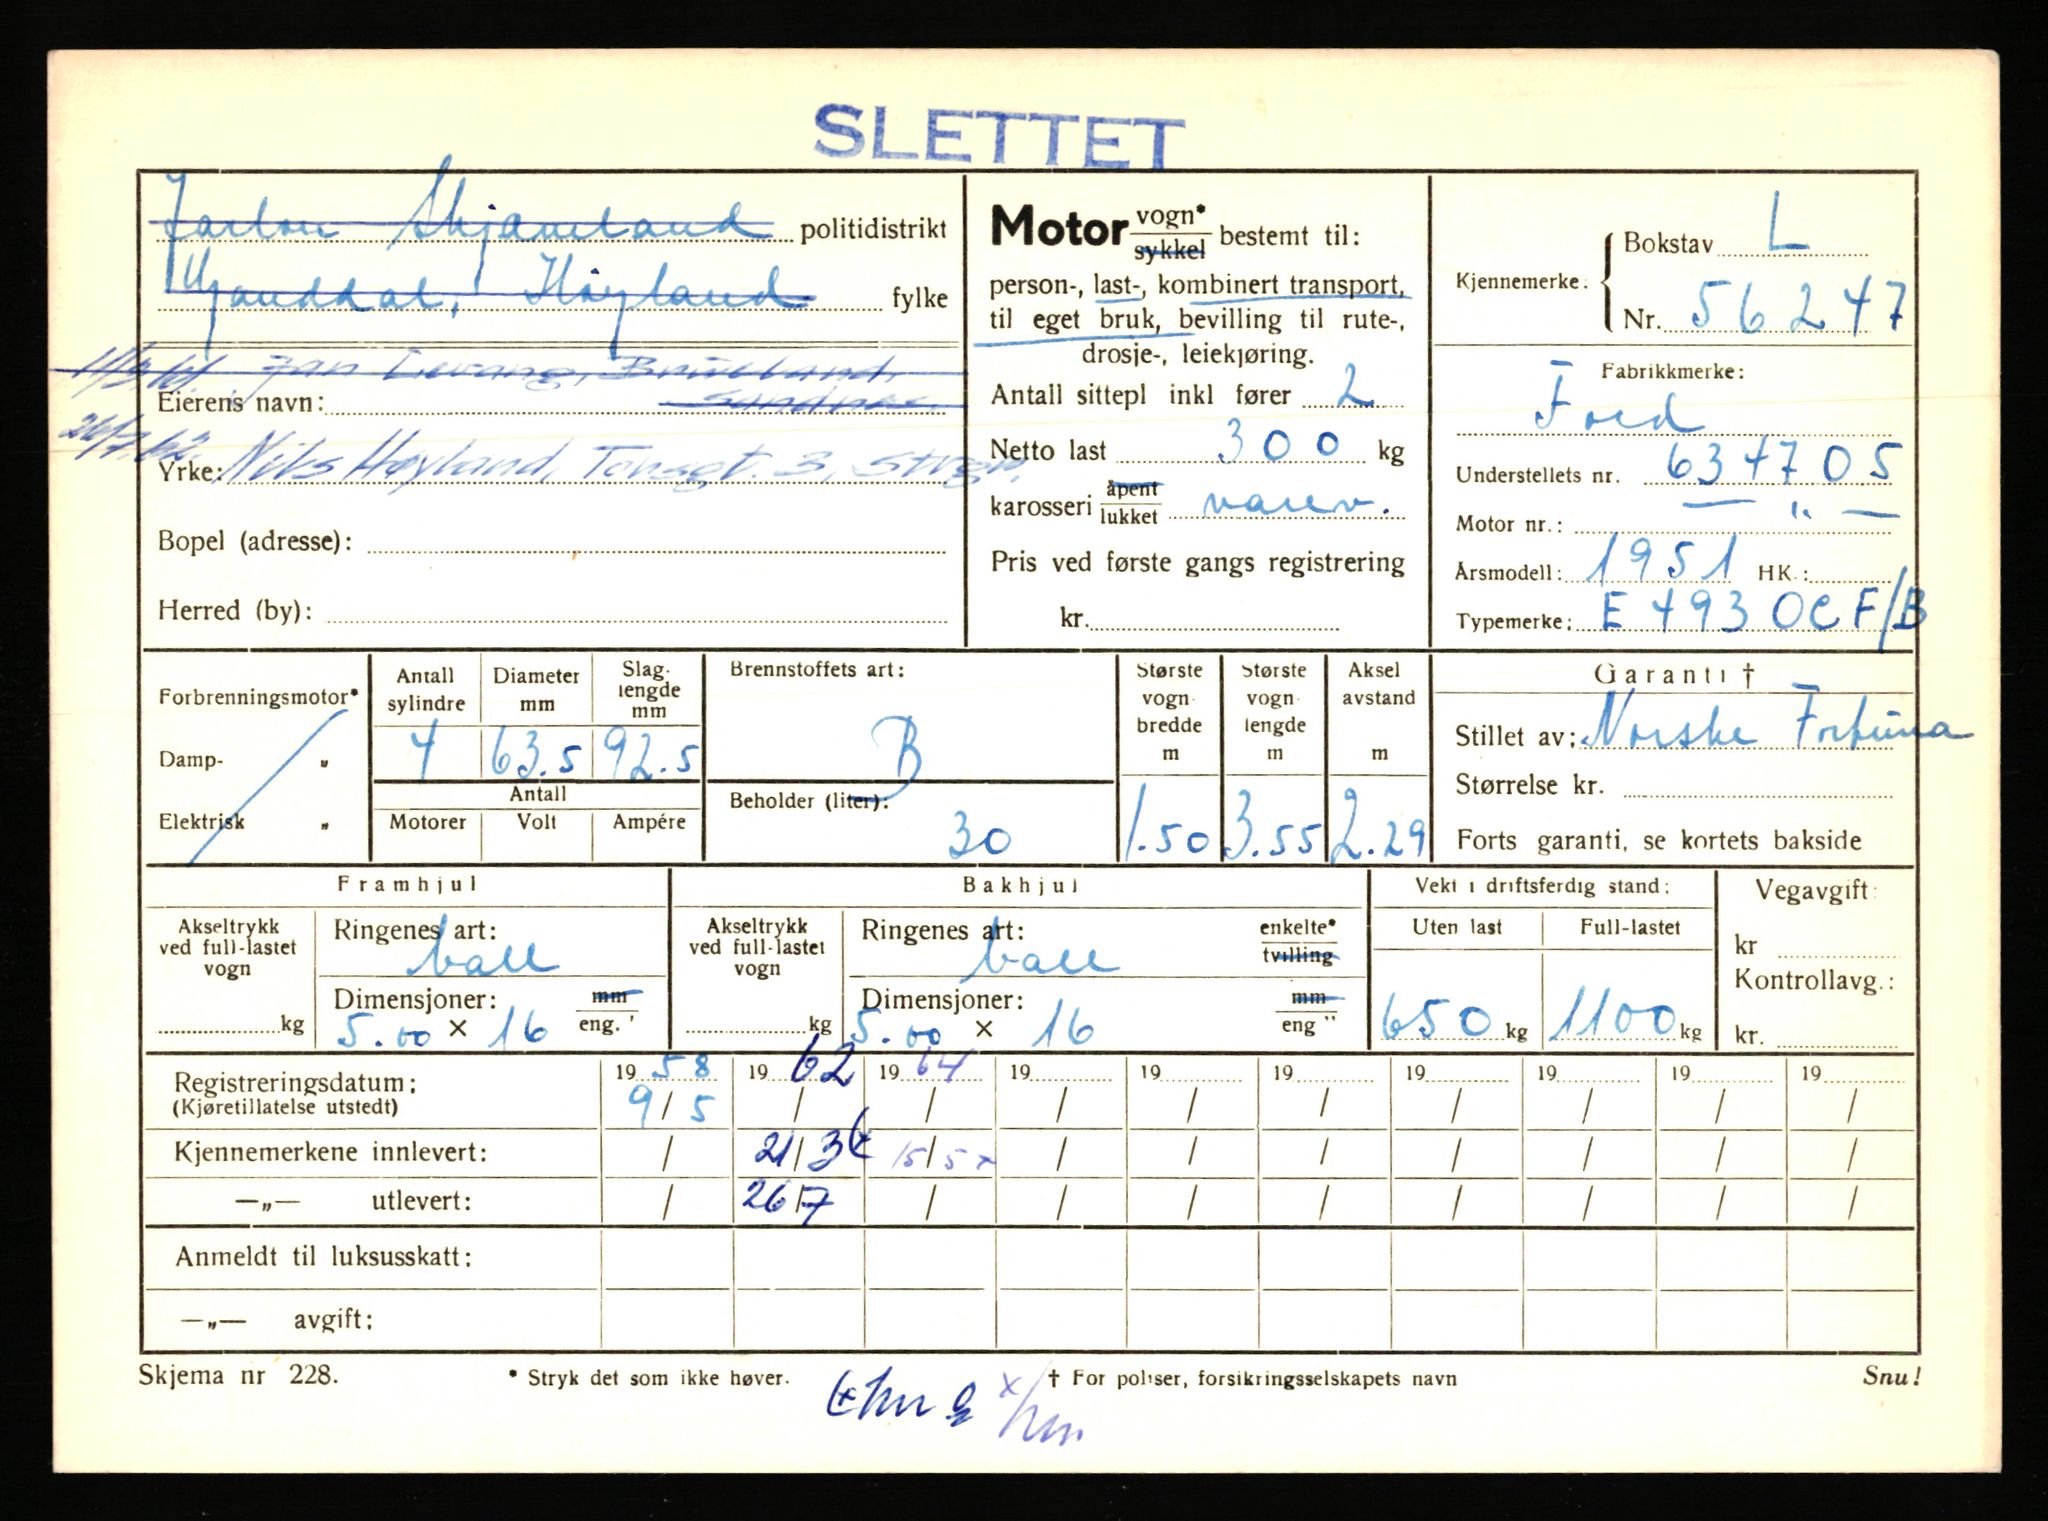 SLETTET
Skjæveland politidistrikt
Ganddal, Høyland fylke
Jan Levang, Brueland,
Eierens navn: Sandnes.
26/7.62.
Yrke: Nils Høyland, Tonsgt. 3, Stvgr.
Bopel (adresse):
Herred (by):
Motor vogn* sykkel bestemt til:
person-, last-, kombinert transport,
til eget bruk, bevilling til rute-,
drosje-, leiekjøring.
Antall sittepl inkl fører 2
Netto last 300 kg
karosseri åpent lukket varev.
Pris ved første gangs registrering
kr.
Kjennemerke: Bokstav L
Nr. 56247
Fabrikkmerke:
Ford
Understellets nr. 634705
Motor nr.: — " —
Årsmodell: 1951 HK.:
Typemerke: E 493 OCF/B
Forbrenningsmotor*
Damp- "
Elektrisk "
Antall sylindre Diameter mm Slaglengde mm
4 63.5 92.5
Antall
Motorer Volt Ampére
Brennstoffets art:
B
Beholder (liter):
30
Største vognbredde m Største vognlengde m Akselavstand m
1.50 3.55 2.29
Garanti †
Stillet av: Norske Fortuna
Størrelse kr.
Forts garanti, se kortets bakside
Framhjul
Akseltrykk ved full-lastet vogn
kg
Ringenes art:
ball
Dimensjoner: mm
5.00 × 16 eng. '
Bakhjul
Akseltrykk ved full-lastet vogn
kg
Ringenes art: enkelte*
ball tvilling
Dimensjoner: mm
5.00 × 16 eng "
Vekt i driftsferdig stand:
Uten last Full-lastet
650 kg 1100 kg
Vegavgift:
kr
Kontrollavg.:
kr.
19 58 19 62 19 64 19 19 19 19 19 19 19
Registreringsdatum: 9/5 / / / / / / / / /
(Kjøretillatelse utstedt)
Kjennemerkene innlevert: / 21/3 15/5 x / / / / / / /
—„— utlevert: / 26/7 / / / / / / / /
Anmeldt til luksusskatt:
—„— avgift:
Skjema nr 228.
* Stryk det som ikke høver.
† For poliser, forsikringsselskapets navn
Snu!